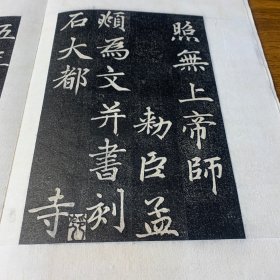 照無上帝師
敕臣孟
頫為文并書刻
石大都
寺
五